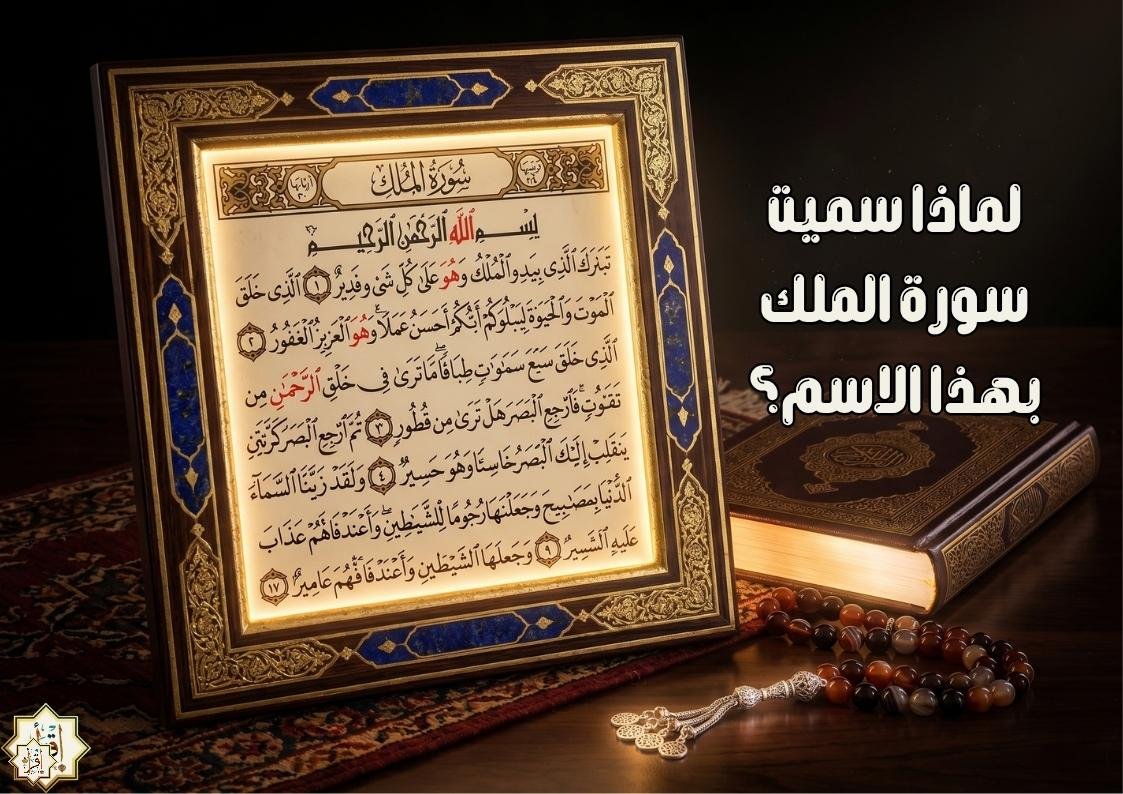 لماذا سمية
سورة الملك
بهذا الاسم؟
سُورَةُ المُلْكِ
بِسْمِ ٱللَّهِ ٱلرَّحْمَٰنِ ٱلرَّحِيمِ
تَبَٰرَكَ ٱلَّذِى بِيَدِو ٱلْمُلْكُ وَهُوَ عَلَىٰ كُلِّ شَىْ وقَدِيرٌ ١ ٱلَّذِى خَلَقَ
ٱلْمَوْتَ وَٱلْحَيَوٰةَ لِيَبْلُوَكُمْ أَيُّكُمْ أَحْسَنُ عَمَلًا وَهُوَ ٱلْعَزِيزُ ٱلْغَفُورُ ٢
ٱلَّذِى خَلَقَ سَبْعَ سَمَٰوَٰتٍ طِبَاقًا مَّا تَرَىٰ فِى خَلْقِ ٱلرَّحْمَٰنِ مِن
تَفَوُتٍ فَٱرْجِعِ ٱلْبَصَرَ هَلْ تَرَىٰ مِن فُطُورٍ ٣ ثُمَّ ٱرْجِعِ ٱلْبَصَرَ كَرَّتَيْنِ
يَنقَلِبْ إِلَيْكَ ٱلْبَصَرُ خَاسِئًا وَهُوَ حَسِيرٌ ٤ وَلَقَدْ زَيَّنَّا ٱلسَّمَآءَ
ٱلدُّنْيَا بِمَصَٰبِيحَ وَجَعَلْنَٰهَا رُجُومًا لِّلشَّيَٰطِينِ وَأَعْنَدفَاهُمْ عَذَابَ
عَلَيهِ ٱلسَّسِيرُ ٩ وَجَعلهَا ٱلشَّيَٰطِينِ وَأَعْنَدفَافَهُمْ عَامِيرٌ ١٧
اقرأ